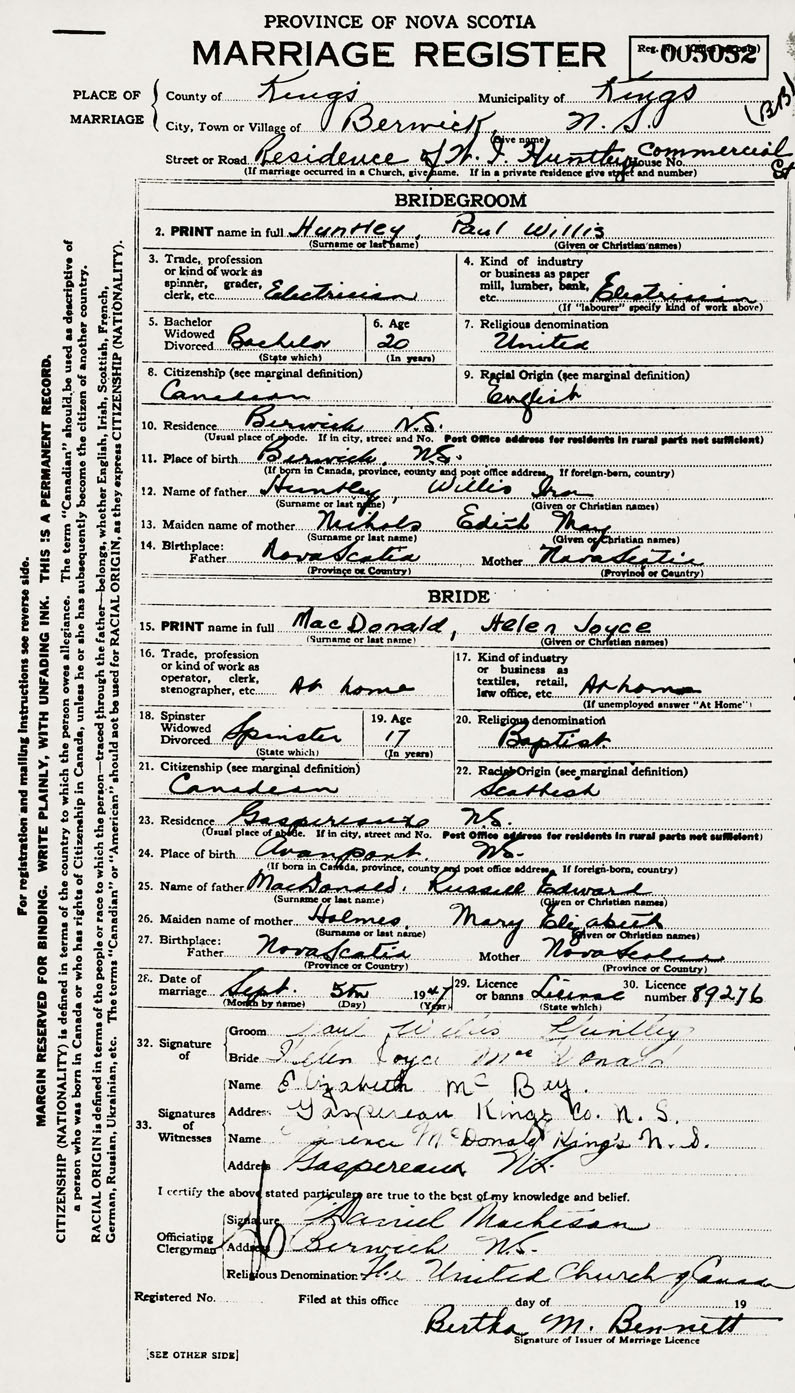 PROVINCE OF NOVA SCOTIA
MARRIAGE REGISTER
Reg. No. 005052
PLACE OF MARRIAGE
County of Kings Municipality of Kings
(BB)
City, Town or Village of Berwick, N. S.
(Give name)
Street or Road Residence of W. I. Huntley House No. Commercial St
(If marriage occurred in a Church, give name. If in a private residence give street and number)
BRIDEGROOM
2. PRINT name in full Huntley, Paul Willis
(Surname or last name) (Given or Christian names)
3. Trade, profession or kind of work as spinner, grader, clerk, etc. Electrician
4. Kind of industry or business as paper mill, lumber, bank, etc. Electrician
(If "labourer" specify kind of work above)
5. Bachelor Widowed Divorced Bachelor
(State which)
6. Age 20
(In years)
7. Religious denomination United
8. Citizenship (see marginal definition) Canadian
9. Racial Origin (see marginal definition) English
10. Residence Berwick N.S.
(Usual place of abode. If in city, street and No. Post Office address for residents in rural parts not sufficient)
11. Place of birth Berwick, N.S.
(If born in Canada, province, county and post office address. If foreign-born, country)
12. Name of father Huntley, Willis
(Surname or last name) (Given or Christian names)
13. Maiden name of mother Nichols Edith May
(Surname or last name) (Given or Christian names)
14. Birthplace: Father Nova Scotia Mother Nova Scotia
(Province or Country) (Province or Country)
BRIDE
15. PRINT name in full MacDonald, Helen Joyce
(Surname or last name) (Given or Christian names)
16. Trade, profession or kind of work as operator, clerk, stenographer, etc. At home
17. Kind of industry or business as textiles, retail, law office, etc. At home
(If unemployed answer "At Home")
18. Spinster Widowed Divorced Spinster
(State which)
19. Age 17
(In years)
20. Religious denomination Baptist
21. Citizenship (see marginal definition) Canadian
22. Racial Origin (see marginal definition) Scottish
23. Residence Gaspereaux N.S.
(Usual place of abode. If in city, street and No. Post Office address for residents in rural parts not sufficient)
24. Place of birth Avonport, N.S.
(If born in Canada, province, county and post office address. If foreign-born, country)
25. Name of father MacDonald, Russell Edward
(Surname or last name) (Given or Christian names)
26. Maiden name of mother Holmes, Mary Elizabeth
(Surname or last name) (Given or Christian names)
27. Birthplace: Father Nova Scotia Mother Nova Scotia
(Province or Country) (Province or Country)
28. Date of marriage Sept. 5th 1947
(Month by name) (Day) (Year)
29. Licence or banns License
(State which)
30. Licence number 89276
32. Signature of
Groom Paul Willis Huntley
Bride Helen Joyce MacDonald
33. Signatures of Witnesses
Name Elizabeth McBay.
Address Gaspereau Kings Co. N. S.
Name McDonald King's N. S.
Address Gaspereaux N.S.
I certify the above stated particulars are true to the best of my knowledge and belief.
Officiating Clergyman
Signature Daniel Matheson
Address Berwick N.S.
Religious Denomination The United Church of Canada
Registered No. Filed at this office day of 19
Bertha M. Bennett
Signature of Issuer of Marriage Licence
[SEE OTHER SIDE]
For registration and mailing instructions see reverse side.
MARGIN RESERVED FOR BINDING. WRITE PLAINLY, WITH UNFADING INK. THIS IS A PERMANENT RECORD.
CITIZENSHIP (NATIONALITY) is defined in terms of the country to which the person owes allegiance. The term "Canadian" should be used as descriptive of
a person who was born in Canada or who has rights of Citizenship in Canada, unless he or she has subsequently become the citizen of another country.
RACIAL ORIGIN is defined in terms of the people or race to which the person—traced through the father—belongs, whether English, Irish, Scottish, French,
German, Russian, Ukrainian, etc. The terms "Canadian" or "American" should not be used for RACIAL ORIGIN, as they express CITIZENSHIP (NATIONALITY).